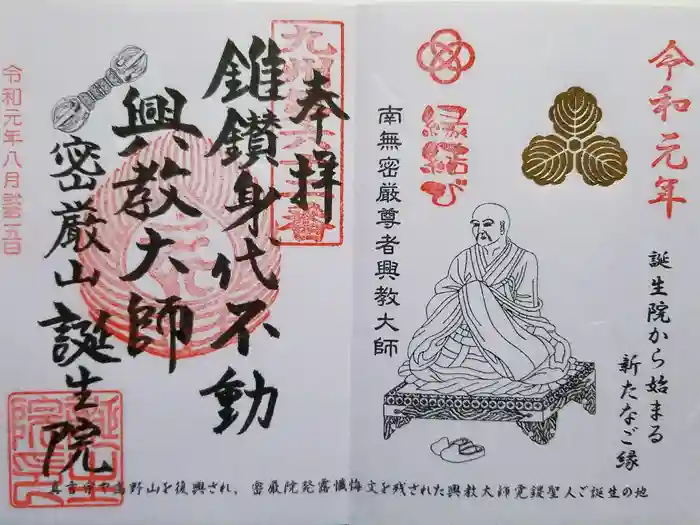 令和元年
誕生院から始まる
新たなご縁
縁結び
南無密厳尊者興教大師
奉拝
錐鑚身代不動
興教大師
密厳山 誕生院
令和元年八月
五日
高野山を復興され、密厳院発露懺悔文を残された興教大師覚鑁聖人ご誕生の地